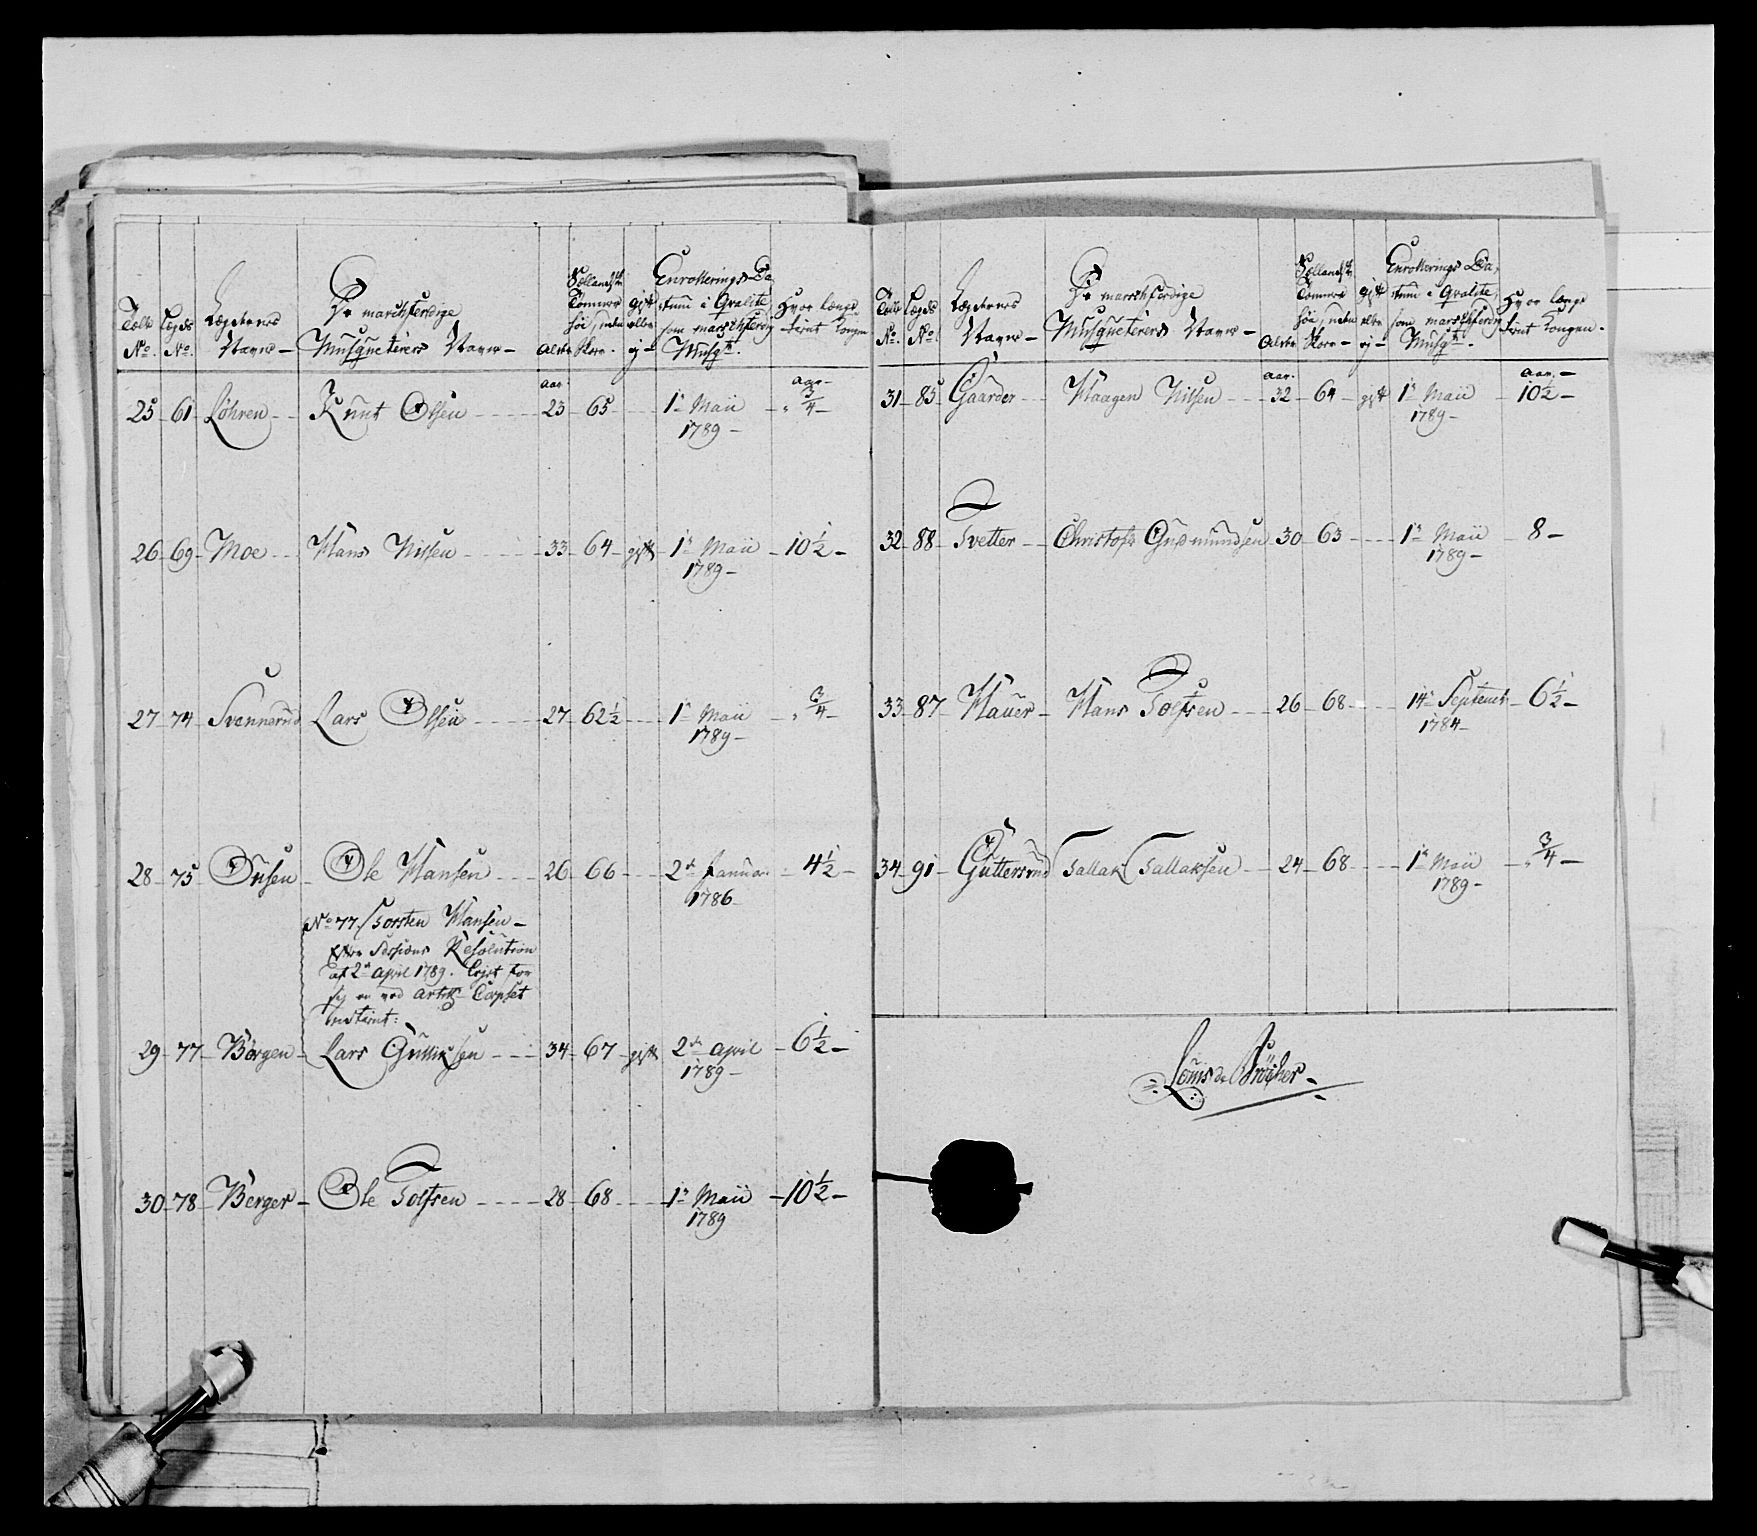 No. No. Lægdernes Navne – De marchferdige Musqueteerers Navne – Alder gift eller ej – Enrollerings Da, tum i Qvalite som marschferdig Musqt. Hvor længe tient Kongen
aar. aar –
25 – 61 Løhren – Knut Olsen – 23 – 65 1te Maii 1789 – 3/4 –
26 – 69 – Moe – Hans Nilsen – 33 – 64 – gift – 1te Maii 1789 – 10 1/2 –
27 – 74 – Svennerud Lars Olsen – 27 – 62 1/2 – 1te Maii 1789 – 3/4 –
28 – 75 – Ole Hansen – 26 – 66 – 2de Januar 1786 – 4 1/2 –
No 77. Torsten Hansen –
Sessions Resolution
af 2de April 1789.
ved Corpset
29 – 77 – Børgen – Lars Gulliksen – 34 – 67 – gift 2de April 1789 – 6 1/2 –
30 – 78 – Berger – Ole Tolfsen – 28 – 68 – 1te Maii 1789 – 10 1/2 –
No. No. Lægdernes Navne – De marschferdige Musqueteerers Navne – Alder gift eller ej – Enrollerings Da, tum i Qvalite som marschferdig Musqt. Hvor længe tient Kongen.
aar. aar. –
31 – 85 Gaarder – Haagen Nilsen – 32 – 64 – gift 1te Maii 1789 – 10 1/2 –
32 – 88 – Tvetter – Christofer Gudmundsen 30 – 63 – 1te Maii 1789 – 8 –
33 – 87 – Hauer – Hans Tolfsen – 26 – 68 – 14te Septembr 1784 – 6 1/2 –
34 – 91 – Guttersrud Tallak Tallaksen – 24 – 68 – 1te Maii 1789 – 3/4 –
Louis de